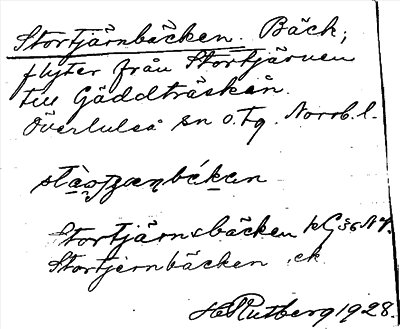 Stortjärnbäcken. Bäck;
flyter från Stortjärnen
till Gäddträsket.
Överluleå sn o. tg. Norrb. l.
Stortjärnsbäcken
Stortjernbäcken ek
H Rutberg 1928.